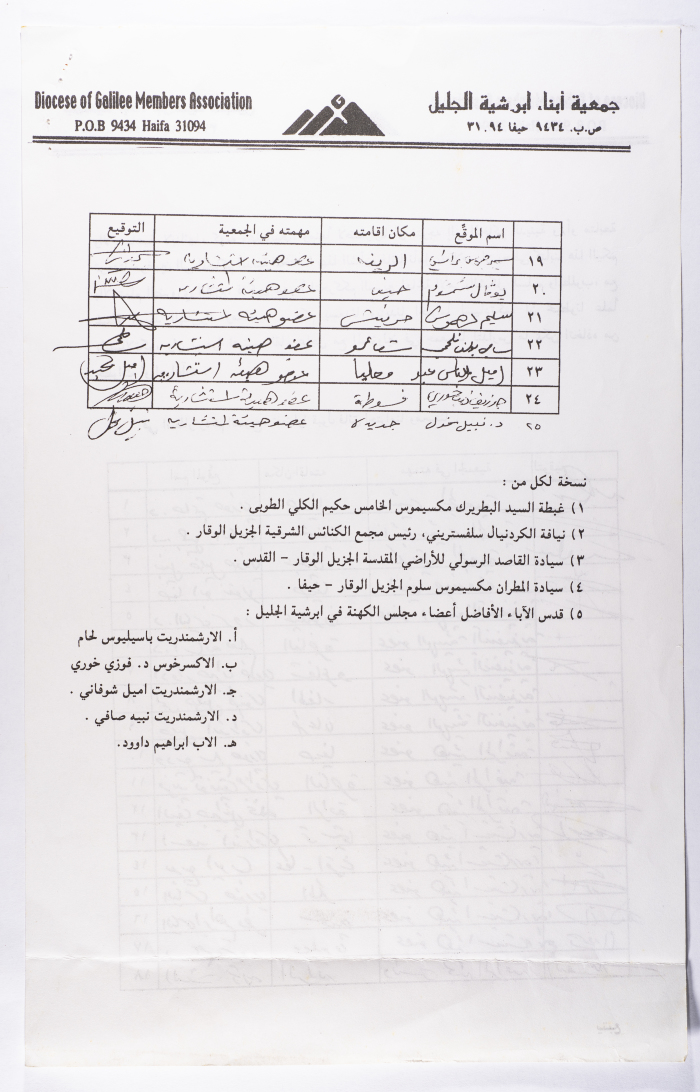 Diocese of Galilee Members Association
P.O.B 9434 Haifa 31094
جمعية أبناء ابرشية الجليل
ص.ب. ٩٤٣٤ حيفا ٣١٠٩٤
اسم الموقّع مكان اقامته مهمته في الجمعية التوقيع
١٩ الرينه عضو هيئة استشارية
٢٠ حيفا عضو هيئة استشارية
٢١ سليم عضو هيئة استشارية
٢٢ عضو هيئه استشاريه
٢٣ اميل معليا عضو هيئة استشاريه
٢٤ خوري فسوطة عضو هيئة استشارية
٢٥ د. نبيل جديدة عضو هيئة استشارية
نسخة لكل من :
١) غبطة السيد البطريرك مكسيموس الخامس حكيم الكلي الطوبى .
٢) نيافة الكردنيال سلفستريني، رئيس مجمع الكنائس الشرقية الجزيل الوقار .
٣) سيادة القاصد الرسولي للأراضي المقدسة الجزيل الوقار – القدس .
٤) سيادة المطران مكسيموس سلوم الجزيل الوقار – حيفا .
٥) قدس الآباء الأفاضل أعضاء مجلس الكهنة في ابرشية الجليل :
أ. الارشمندريت باسيليوس لحام
ب. الاكسرخوس د. فوزي خوري
جـ. الارشمندريت اميل شوفاني .
د. الارشمندريت نبيه صافي .
هـ. الاب ابراهيم داوود.